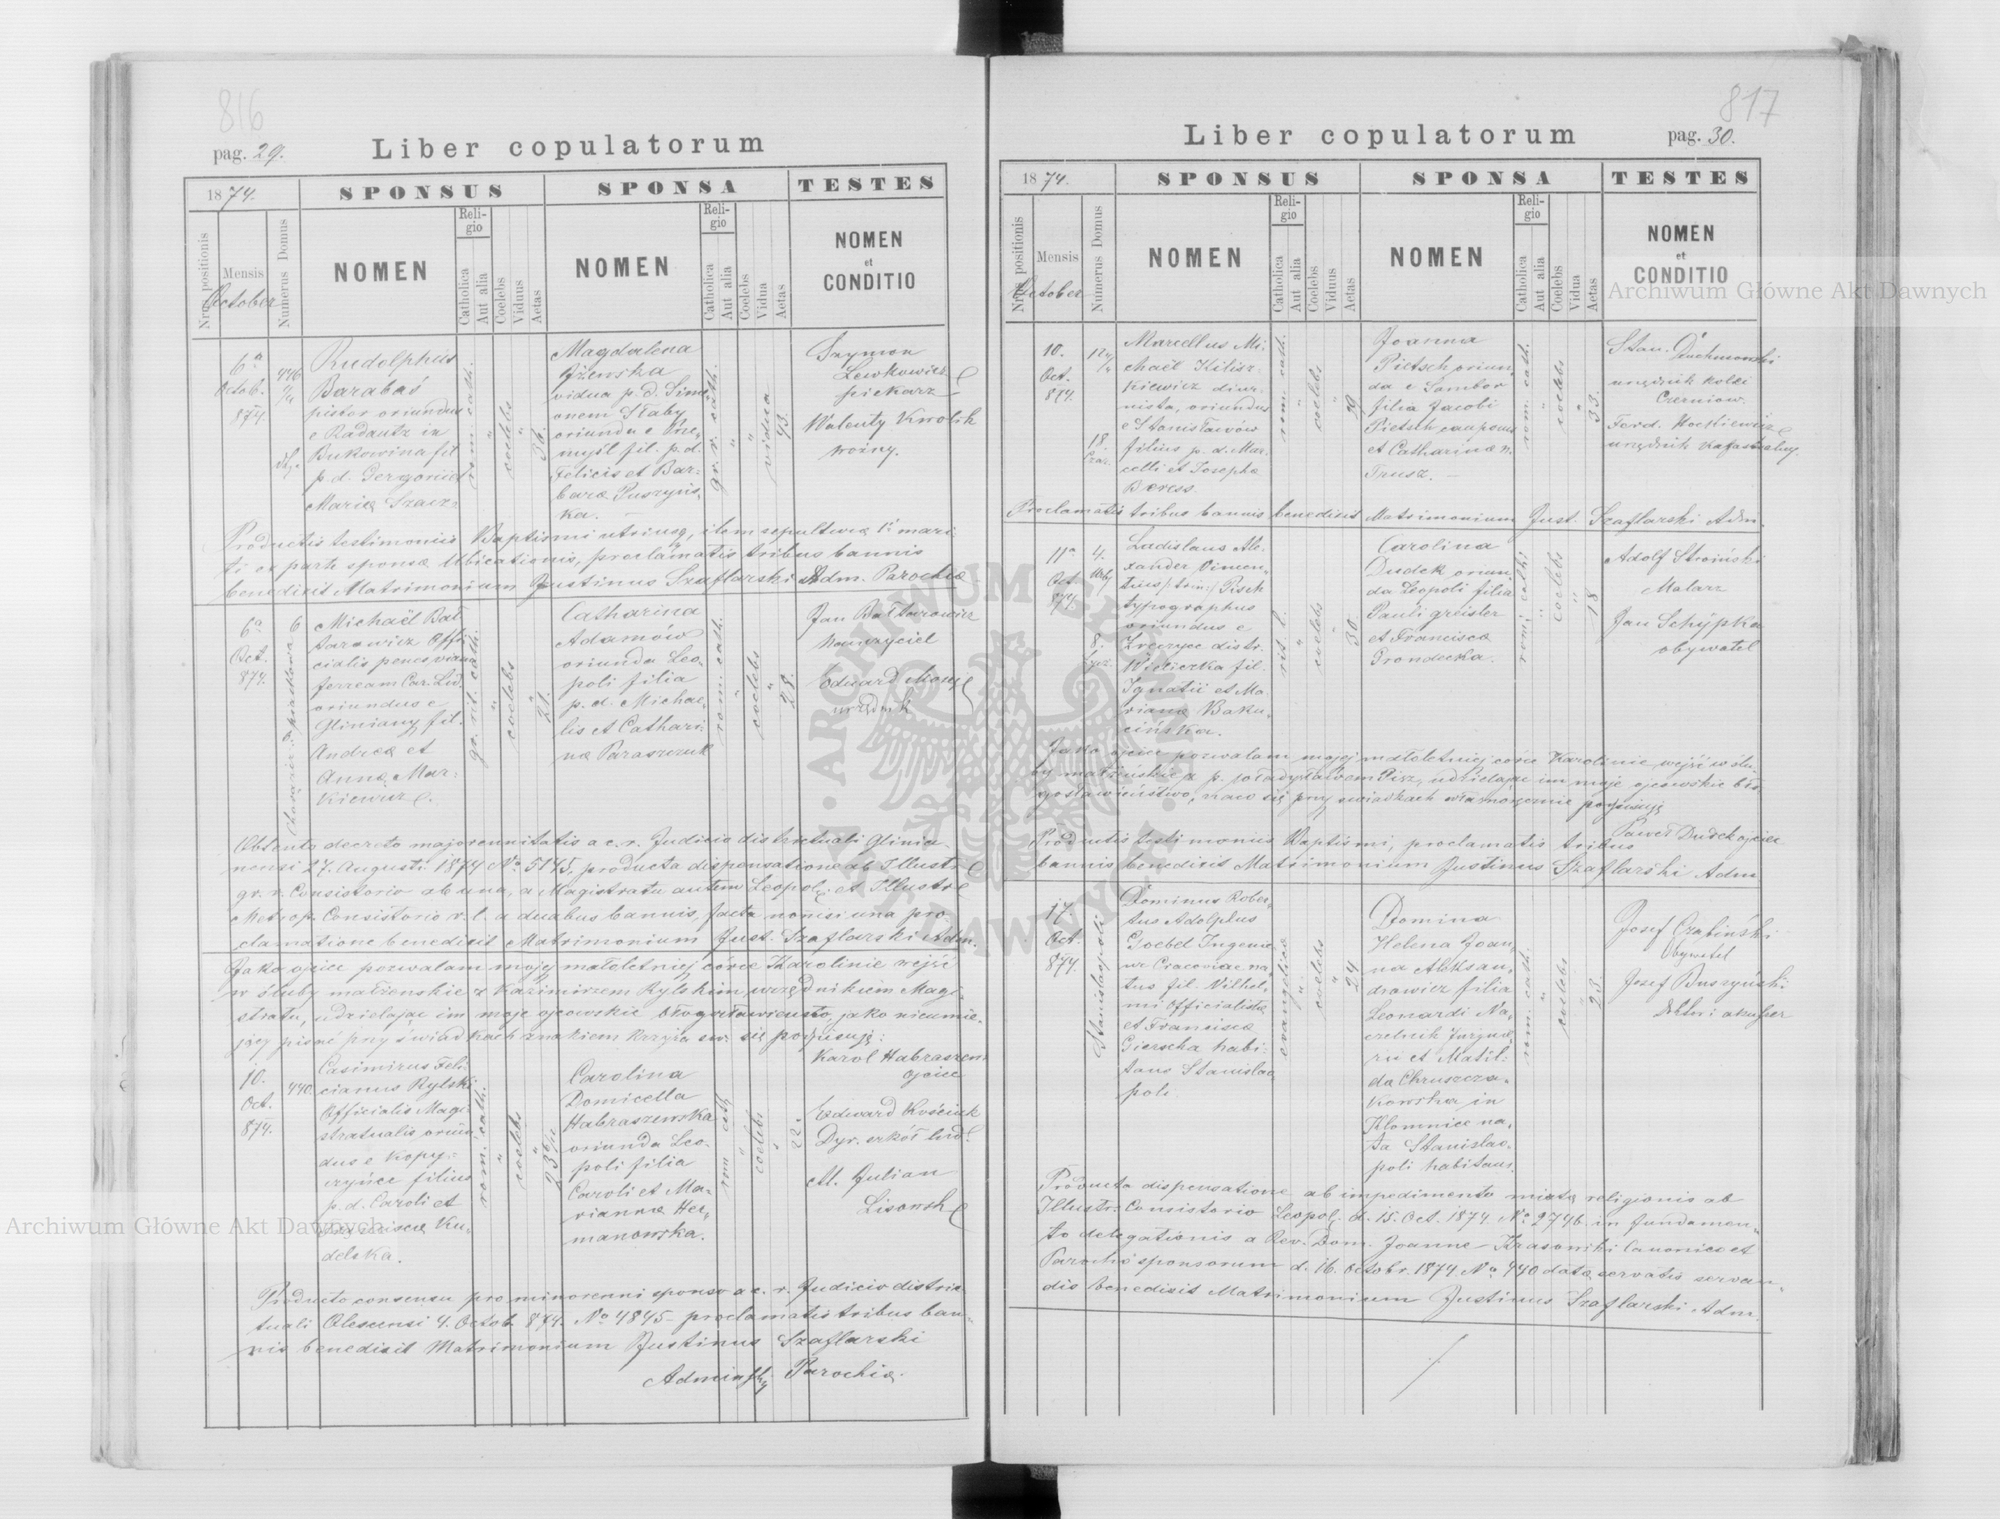 816
pag. 29.
Liber copulatorum
1874.
SPONSUS
SPONSA
TESTES
Nrus positionis
Mensis
October
Numerus Domus
NOMEN
Religio
Catholica
Aut alia
Coelebs
Viduus
Aetas
NOMEN
Religio
Catholica
Aut alia
Coelebs
Vidua
Aetas
NOMEN
et
CONDITIO
6a
Octob.
874.
Rudolphus
Barabaś
pistor oriundus
e Radautz in
Bukowina fil
p. d. Gergonii et
Mariæ Szacz
rom. cath.
"
coelebs
"
Magdalena
Iżewska
vidua p. d. Sim
onem Słaby
oriunda e Prze
myśl fil. p. d.
Felicis et Bar-
baræ Puszyńs-
ka. –
gr. r. cath.
"
"
vidua
43.
Szymon
Lewkowicz
piekarz
Walenty Kwolik
woźny.
Productis testimoniis Baptismi utriusq, item sepulturæ 1i mari
ti ex parte sponsæ Ubicationis, proclamatis tribus bannis
benedixit Matrimonium Justinus Szaflarski Adm. Parochiæ
6a
Oct.
874.
6
Michaël Bał
tarowicz Offi
cialis penes viam
ferream Car. Lud.
oriundus e
Gliniany fil.
Andreæ et
Annæ Mar-
kiewicz.
gr. rit. cath.
"
coelebs
"
21.
Catharina
Adamów
oriunda Leo-
poli filia
p. d. Michae-
lis et Cathari-
næ Paraszczuk
rom. cath.
"
coelebs
"
28.
Jan Bałtarowicz
Nauczyciel
Edward
urzędnik
Obtento decreto majorennitatis a c. r. Judicio districtuali Glinia-
nensi 27. Augusti 1874 No 5145, producta dispensatione ab Illustre
gr. r. Consistorio ab una, a Magistratu autem Leopol. et Illustre
Metrop. Consistorio r. l. a duabus bannis, facta nonnisi una pro-
clamatione benedixit Matrimonium Just. Szaflarski Adm.
Jako ojciec pozwalam mojej małoletniej córce Karolinie wejść
w śluby małżenskie z Kazimirzem Rylskim, urzędnikiem Magi-
stratu, udzielając im moje ojcowskie błogosławieństwo, jako nieumie-
jący pisać przy świadkach znakiem krzyża św. się podpisuję:
Karol Habraszew
ojciec
10.
Oct.
874.
440.
Casimirus Feli-
cianus Rylski
Officialis Magi-
stratualis oriun-
dus e Kopy-
czyńce filius
p. d. Caroli et
Franciscæ Ku-
delska.
rom. cath.
"
coelebs
"
Carolina
Domicella
Habraszewska
oriunda Leo-
poli filia
Caroli et Ma-
riannæ Her-
manowska.
rom cath
"
coelebs
"
22.
Edward Kościuk
Dyr. szkół lud.
M. Julian
Lisowski
Producto consensu pro minorenni sponso a c. r. Judicio distric-
tuali Olescensi 4. Octob. 874. No 4845 – proclamatis tribus ban-
nis benedixit Matrimonium Justinus Szaflarski
Parochiæ.
817
pag. 30.
Liber copulatorum
1874.
SPONSUS
SPONSA
TESTES
Nrus positionis
Mensis
October
Numerus Domus
NOMEN
Religio
Catholica
Aut alia
Coelebs
Viduus
Aetas
NOMEN
Religio
Catholica
Aut alia
Coelebs
Vidua
Aetas
NOMEN
et
CONDITIO
10.
Oct.
874.
Marcellus Mi
chaël Kilisz-
kiewicz diur-
nista, oriundus
e Stanisławów
filius p. d. Mar-
celli et Josepha
Boress.
rom. cath.
"
coelebs
"
29
Joanna
Pietsch oriun-
da e Sambor
filia Jacobi
Pietsch caupona
et Catharinæ n.
Trusz. –
rom. cath.
"
coelebs
"
33.
Stan.
urzędnik kolei
Czerniow.
Ferd.
urzędnik katastralny.
Proclamatis tribus bannis benedixit Matrimonium Just. Szaflarski Adm.
11a
Oct.
874.
4.
8.
Ladislaus Ale-
xander Vincen-
tius Pisch
typographus
oriundus e
distr.
Wieliczka fil.
Ignatii et Ma
riannæ Baku-
cińska.
rit. l.
"
coelebs
"
30.
Carolina
Dudek oriun
da Leopoli filia
Pauli greisler
et Franciscæ
Grondecka.
rom. cath.
"
coelebs
"
18
Adolf Stroiński
Malarz
Jan Schÿpka
obywatel
Jako ojciec pozwalam mojej małoletniej córce Karolinie, wejść w ślu
by małżeńskie z p. Władysławem Pisz, udzielając im moje ojcowskie bło
gosławieństwo, naco się przy świadkach własnoręcznie podpisuję
Paweł Dudek ojciec
Productis testimoniis Baptismi, proclamatis tribus
bannis benedixit Matrimonium Justinus Szaflarski Adm
17.
Oct.
874.
Stanislaopoli
Dominus Rober-
tus Adolphus
Goebel Ingenie
ur Cracoviae na-
tus fil. Wilhel-
mi Officialista
et Francisca
Gierscha habi-
tans Stanislao
poli
evangelicæ
"
coelebs
"
24
Domina
Helena Joan-
na Aleksan-
drowicz filia
Leonardi Na-
czelnik
et Matil-
da Chruszcza-
kowska in
Kłomnice na-
ta Stanislao-
poli habitans
rom. cath.
"
coelebs
"
23.
Josef Czabiński
Obywatel
Jozef Buszyński
Doktor i akuszer
Producta dispensatione ab impedimento mixtæ religionis ab
Illustr. Consistorio Leopol. d. 15. Oct. 1874. No 2746 in fundamen-
to delegationis a Rev. Dom. Joanne Krasowski Canonico et
Parocho sponsorum d. 16. Octobr. 1874. No 440 data, servatis servan-
dis benedixit Matrimonium Justinus Szaflarski Adm.
Archiwum Główne Akt Dawnych
Archiwum Główne Akt Dawnych
ARCHIWUM GŁÓWNE AKT DAWNYCH